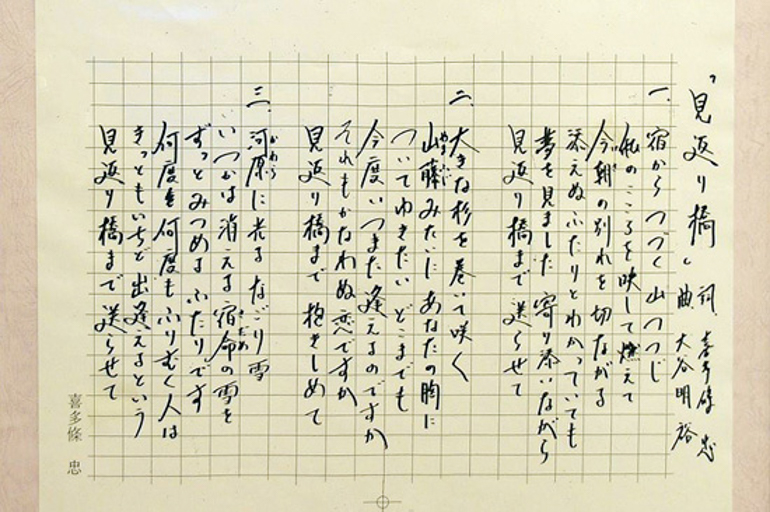 「見返り橋」
詞 喜多條 忠
曲 大谷明裕
一、宿からつづく山つつじ
私のこころを映して燃えて
今朝の別れを切ながる
添えぬふたりとわかっていても
夢を見ました 寄り添いながら
見返り橋まで 送らせて
二、大きな杉を巻いて咲く
山藤みたいにあなたの胸に
ついてゆきたい どこまでも
今度いつまた逢えるのですか
それもかなわぬ恋ですか
見返り橋まで 抱きしめて
三、河原に光るなごり雪
いつかは消える宿命の雪を
ずっとみつめるふたりです
何度も何度もふりむく人は
きっともいちど出逢えるという
見返り橋まで 送らせて
喜多條 忠